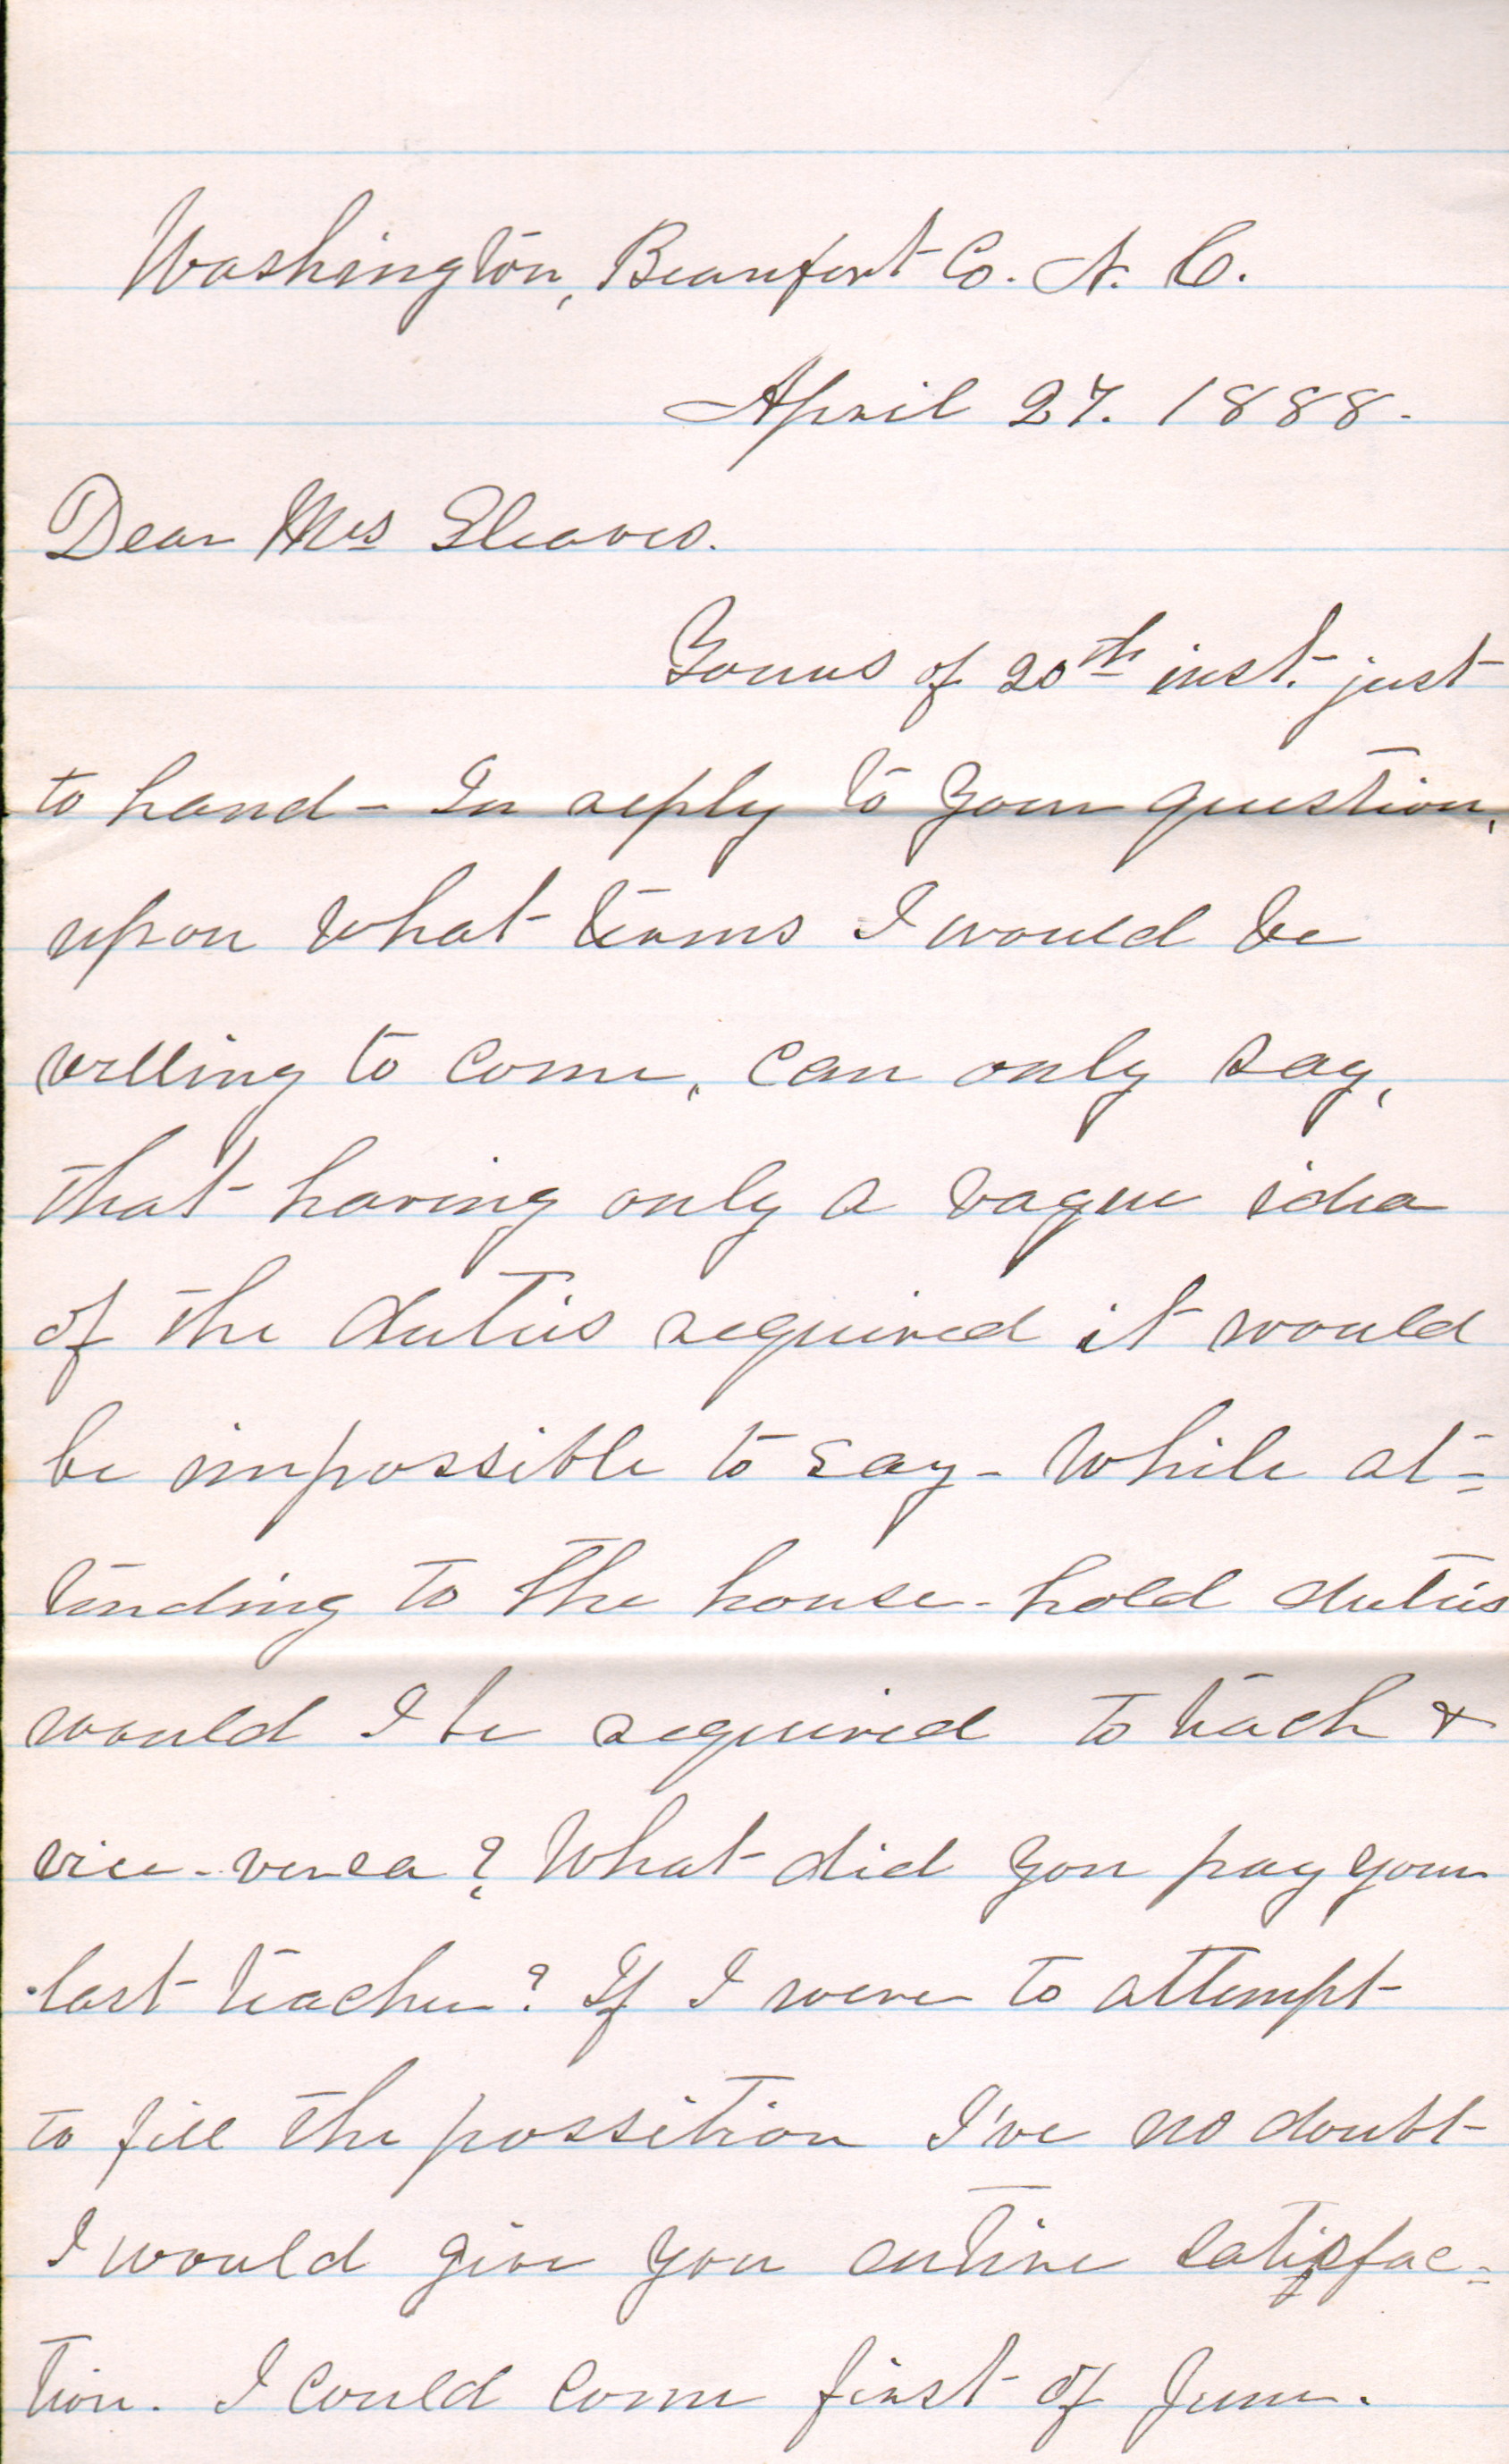 Washington, Beaufort Co. N. C.
April 27. 1888.
Dear Mrs Gleaves.
Yours of 20th inst. just
to hand - In reply to your question,
upon what terms I would be
willing to come, can only say,
that having only a vague idea
of the duties required it would
be impossible to say - While at=
tending to the house-hold duties
would I be required to teach &
vice-versa? What did you pay your
last teacher? If I were to attempt
to fill the possition I've no doubt
I would give you entire satisfac=
tion. I could come first of June.